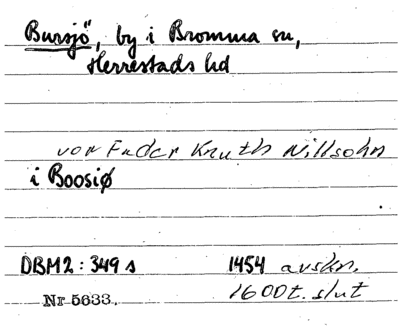 Bursjö, by i Bromma sn,
Herrestads hd
vor Fader Knuth Nillsøhn
i Boosiø
DBM2: 349 s 1454 avskr.
Nr 5633. 1600t. slut